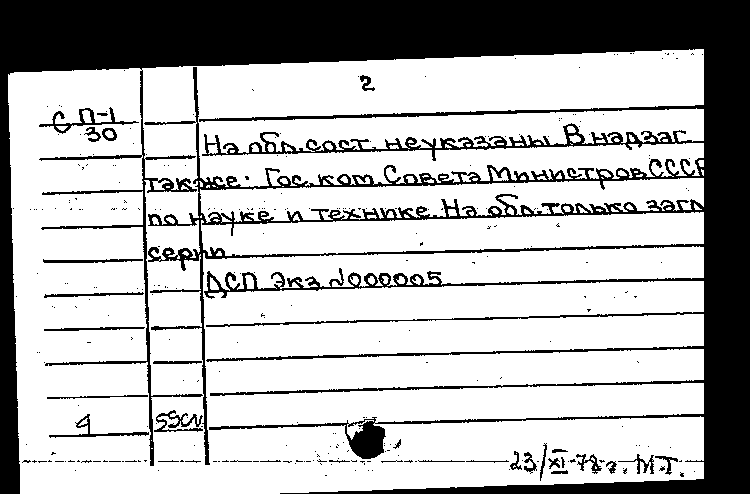 2
С П-1
30
На обл. сост. не указаны. В надзаг
также: Гос. ком. Совета Министров СССР
по науке и технике. На обл. только загл
серии.
ДСП Экз №000005
23/XI-78 г. М.Т.